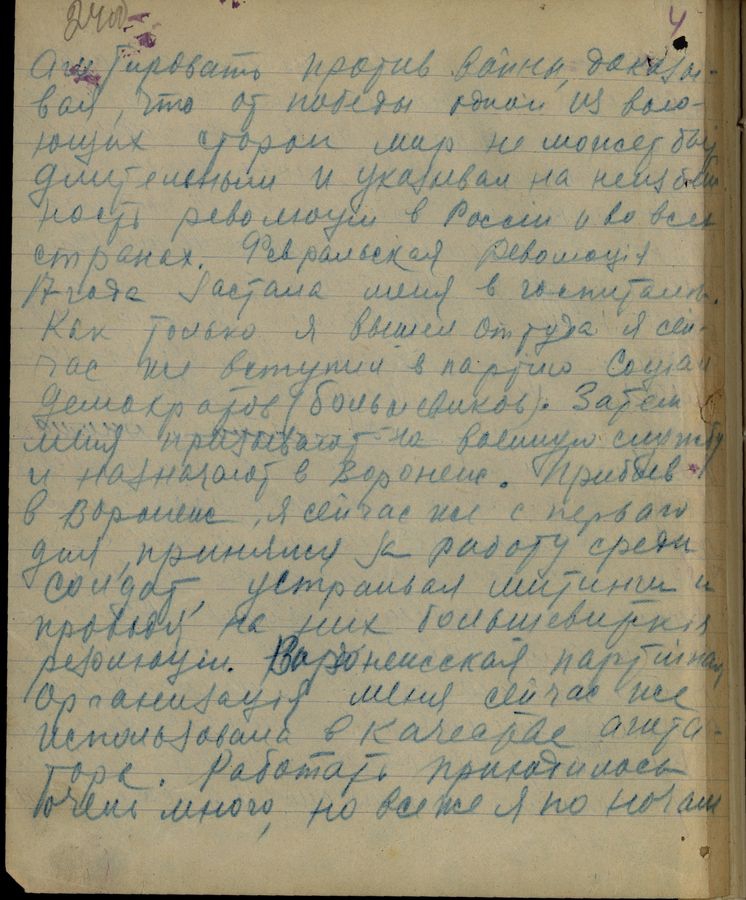 4
Агитировать против войны, доказы-
вая, что от победы одной из вою-
ющих сторон мир не может быть
длительным и указывал на неизбеж-
ность революции в России и во всех
странах. Февральская Революція
17 года застала меня в госпитале.
Как только я вышел оттуда я сей-
час же вступил в партію Социал
демократов (большевиков). Затем
меня призывают на военную службу
и назначают в Воронеж. Прибыв
в Воронеж, я сейчас же с перваго
дня, принялся за работу среди
солдат, устраивая митинги и
проводя на них большевитскія
резолюціи. Воронежсская партійная
Организація меня сейчас же
использовала в качестве агита-
тора. Работать приходилось
очень много, но все же я по ночам